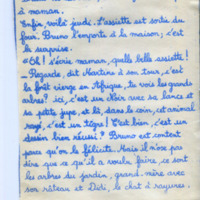 à maman.
Enfin, voilà jeudi. L'assiette est sortie du
four. Bruno l'emporte à la maison ; c'est
la surprise.
"Oh ! s'écrie maman, quelle belle assiette !
_ Regarde, dit Martine à son tour, c'est
la forêt vierge en Afrique, tu vois les grands
arbres? ici, c'est un Noir avec sa lance et
sa petite jupe, et là, dans le coin, cet animal
rayé, c'est un tigre ! C'est bien, c'est un
dessin bien réussi " ? Bruno est content
parce qu'on le félicite. Mais il n'ose pas
dire que ce qu'il a voulu faire, ce sont
les arbres du jardin, grand-mère avec
son râteau et Didi, le chat à rayures.